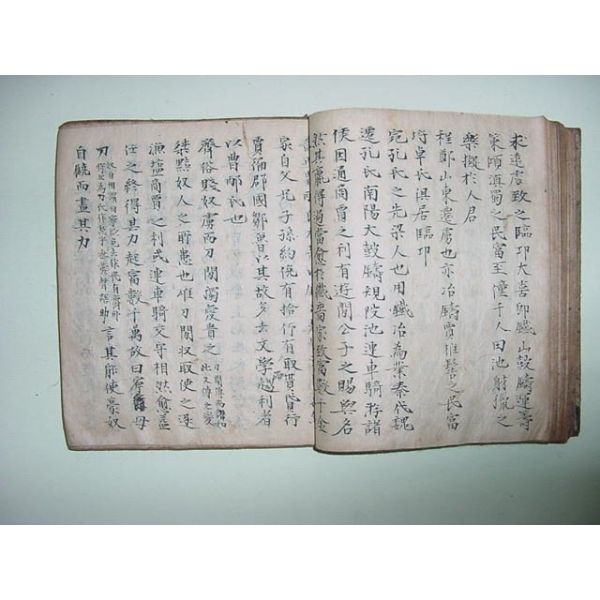 求遠處致之臨邛大喜即鐵山鼓鑄運籌
策傾滇蜀之民富至僮千人田池射獵之
樂擬於人君
程鄭山東遷虜也亦冶鑄賈椎髻之民富
埒卓氏俱居臨邛
宛孔氏之先梁人也用鐵冶為業秦伐魏
遷孔氏南陽大鼓鑄規陂池連車騎游諸
侯因通商賈之利有遊閒公子之賜與名
然其贏得過當愈於纖嗇家致富數千金
家自父兄子孫約俛有拾仰有取貰貸行
賈徧郡國鄒魯以其故多去文學趨利者
以曹邴氏也
齊俗賤奴虜而刀閒獨愛貴之
桀黠奴人之所患也惟刀閒収取使之逐
漁塩商賈之利或連車騎交守相然愈益
任之終得其力起富數千萬故曰寧爵毋
刀 言其能使豪奴
自饒而盡其力